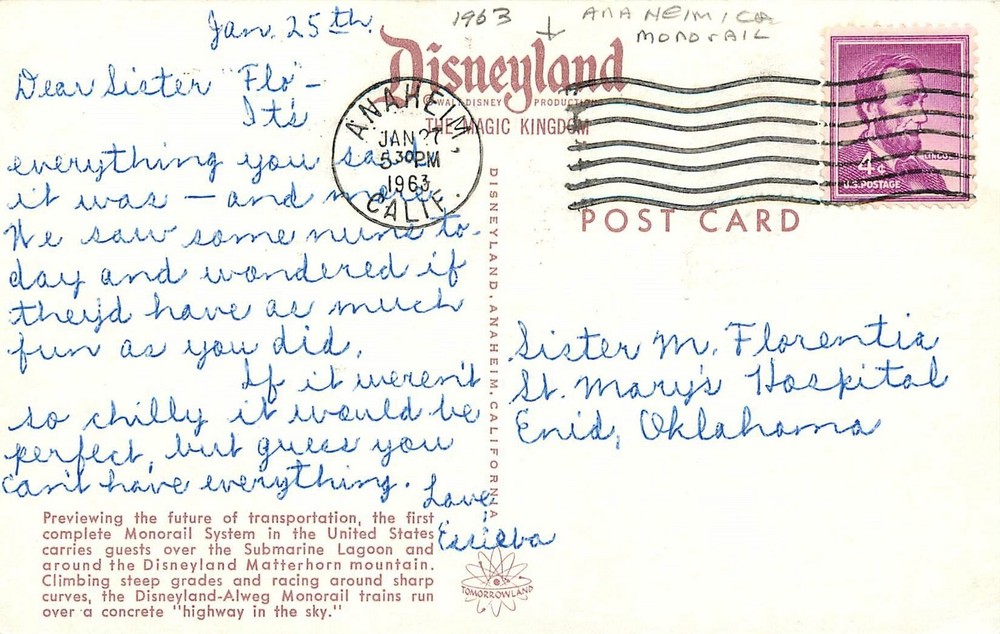 1963 ANAHEIM, CA
MONORAIL
Jan. 25th.
Dear Sister "Flo" -
It's
everything you said
it was - and more.
We saw some nuns to-
day and wondered if
they'd have as much
fun as you did.
If it weren't
so chilly it would be
perfect, but guess you
can't have everything.
Love,
Disneyland
© WALT DISNEY PRODUCTIONS
THE MAGIC KINGDOM
ANAHEIM,
JAN 27
5 30 PM
1963
CALIF.
LINCOLN
4¢
U.S. POSTAGE
POST CARD
DISNEYLAND, ANAHEIM, CALIFORNIA
Sister M. Florentia
St. Mary's Hospital
Enid, Oklahoma
Previewing the future of transportation, the first
complete Monorail System in the United States
carries guests over the Submarine Lagoon and
around the Disneyland Matterhorn mountain.
Climbing steep grades and racing around sharp
curves, the Disneyland-Alweg Monorail trains run
over a concrete "highway in the sky."
TOMORROWLAND